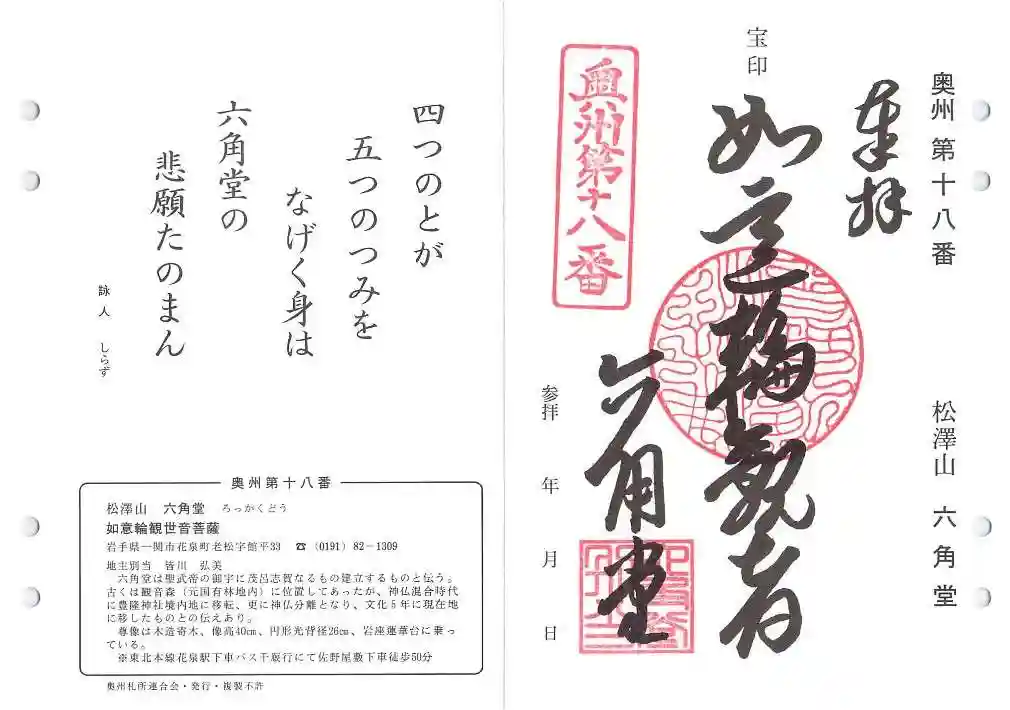 奥州第十八番
松澤山 六角堂
奉拝
宝印
如意輪観音
六角堂
奥州第十八番
参拝 年 月 日
四つのとが
五つのつみを
なげく身は
六角堂の
悲願たのまん
詠人 しらず
奥州第十八番
松澤山 六角堂 ろっかくどう
如意輪観世音菩薩
岩手県一関市花泉町老松字館平33 ☎(0191)82-1309
地主別当 皆川 弘美
六角堂は聖武帝の御宇に茂呂志賀なるもの建立するものと伝う。
古くは観音森(元国有林地内)に位置してあったが、神仏混合時代
に豊隆神社境内地に移転、更に神仏分離となり、文化5年に現在地
に移したものとの伝えあり。
尊像は木造寄木、像高40㎝、円形光背径26㎝、岩座蓮華台に乗っ
ている。
※東北本線花泉駅下車バス千厩行にて佐野屋敷下車徒歩50分
奥州札所連合会・発行・複製不許